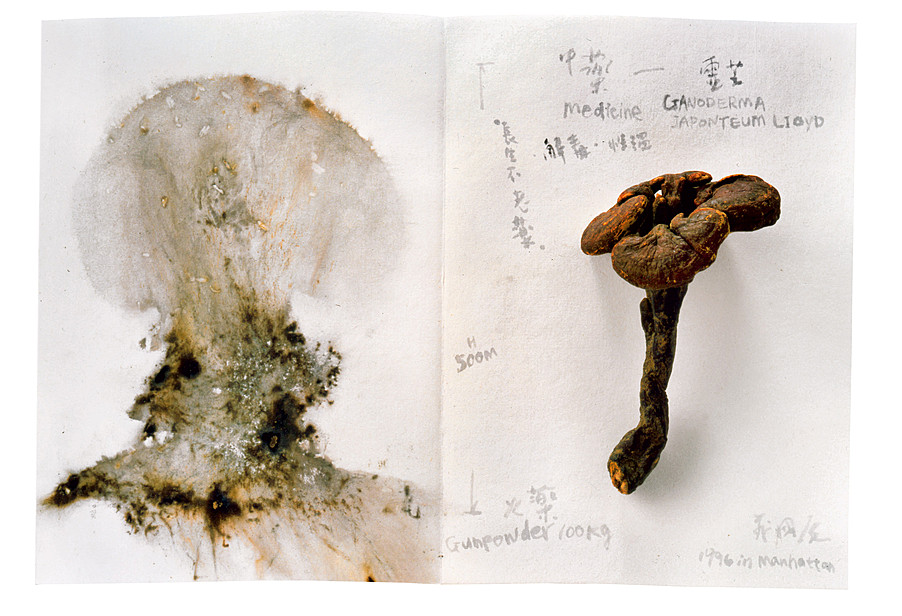 中藥 — 靈芝
Medicine GANODERMA
JAPONTEUM LIOYD
解毒・性溫
長生不老藥。
H
500M
火藥
Gunpowder 100kg
1996 in Manhattan